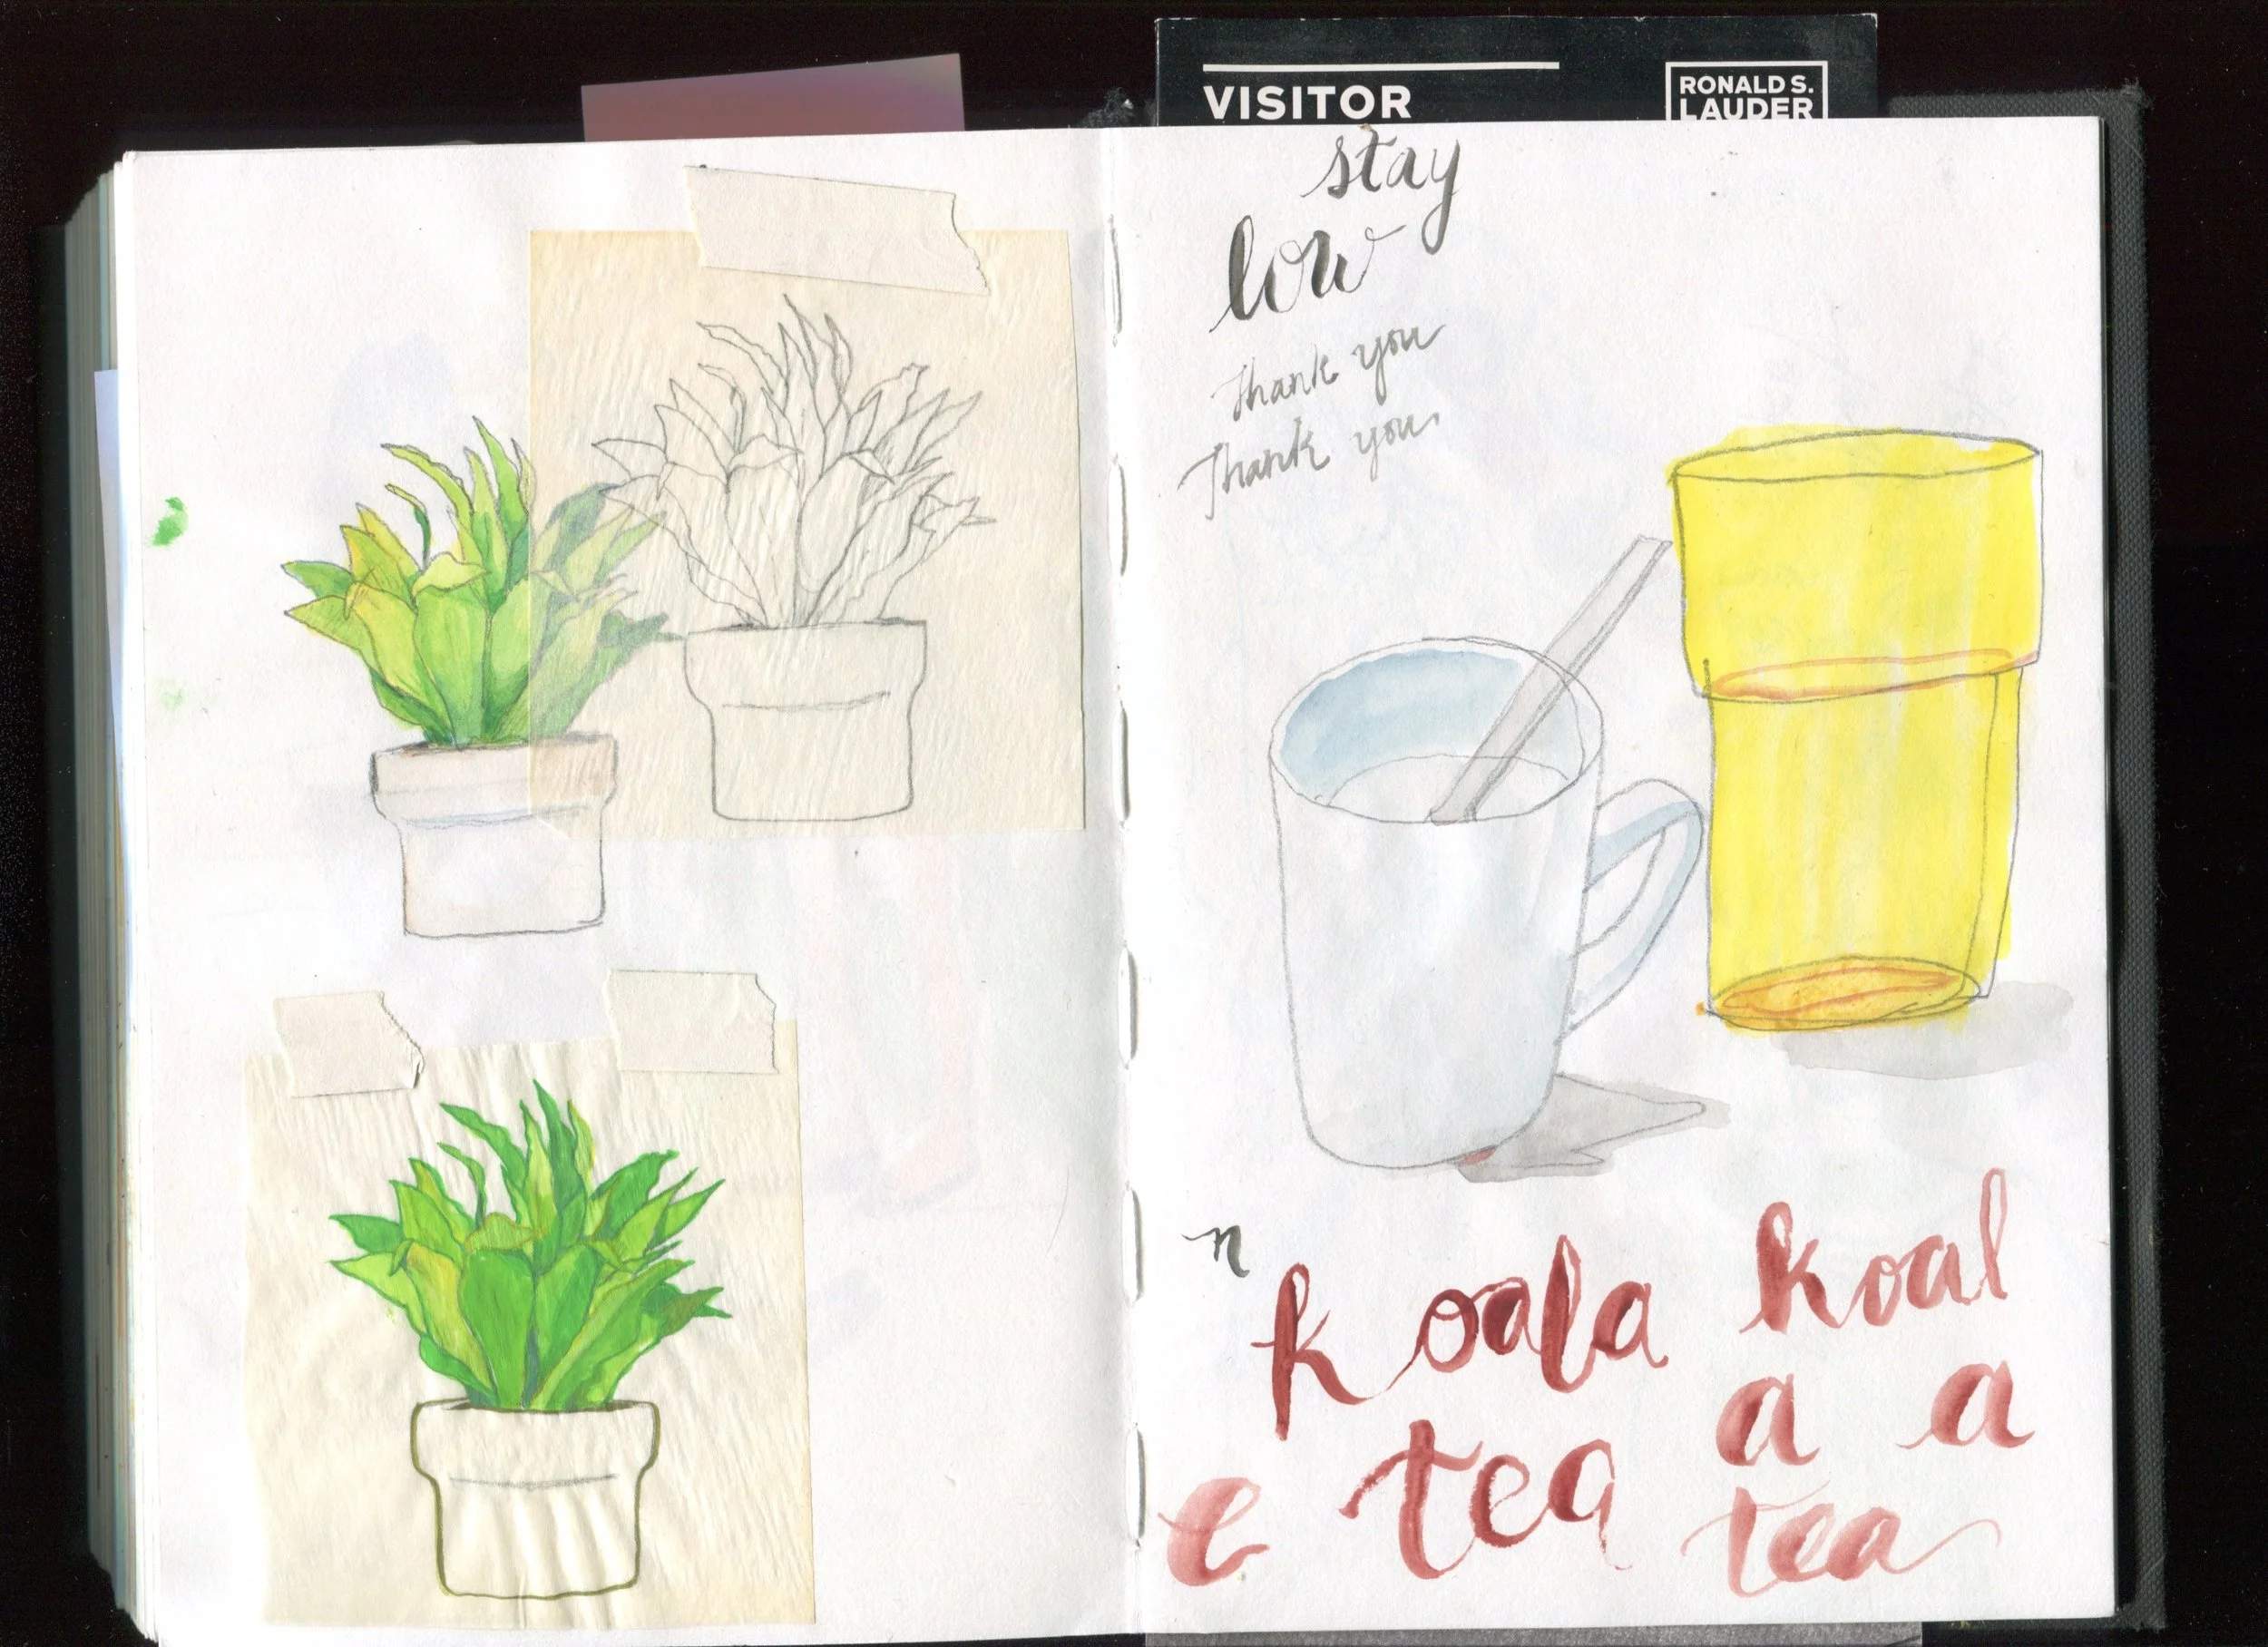 VISITOR
RONALD S.
LAUDER
stay
low
Thank you
Thank you
n
koala koal
a a
e tea tea